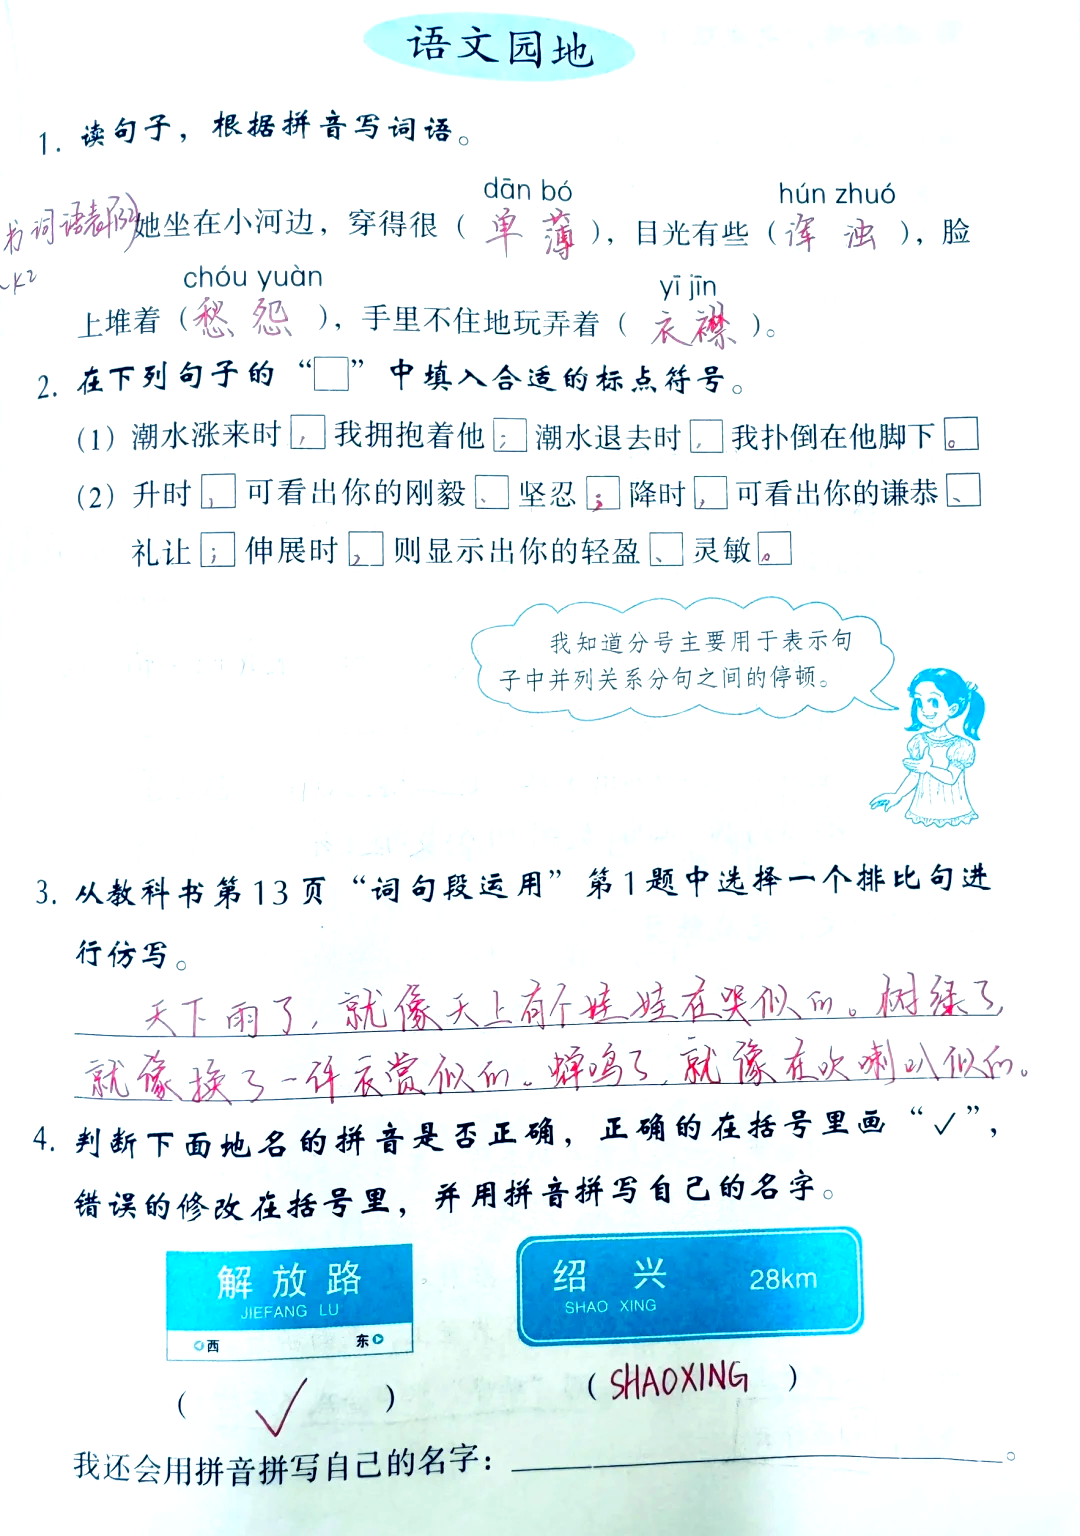 语文园地
1. 读句子，根据拼音写词语。
dān bó hún zhuó
书词语表P132 她坐在小河边，穿得很（单薄），目光有些（浑浊），脸
chóu yuàn yī jīn
上堆着（愁怨），手里不住地玩弄着（衣襟）。
2. 在下列句子的“□”中填入合适的标点符号。
(1) 潮水涨来时，我拥抱着他；潮水退去时，我扑倒在他脚下。
(2) 升时，可看出你的刚毅、坚忍；降时，可看出你的谦恭、
礼让；伸展时，则显示出你的轻盈、灵敏。
我知道分号主要用于表示句
子中并列关系分句之间的停顿。
3. 从教科书第13页“词句段运用”第1题中选择一个排比句进
行仿写。
天下雨了，就像天上有个娃娃在哭似的。树绿了，
就像换了一件衣赏似的。蝉鸣了，就像在吹喇叭似的。
4. 判断下面地名的拼音是否正确，正确的在括号里画“✓”，
错误的修改在括号里，并用拼音拼写自己的名字。
解放路
JIEFANG LU
西 东
绍兴 28km
SHAO XING
（ ✓ ） （ SHAOXING ）
我还会用拼音拼写自己的名字：＿＿＿＿＿＿＿＿。